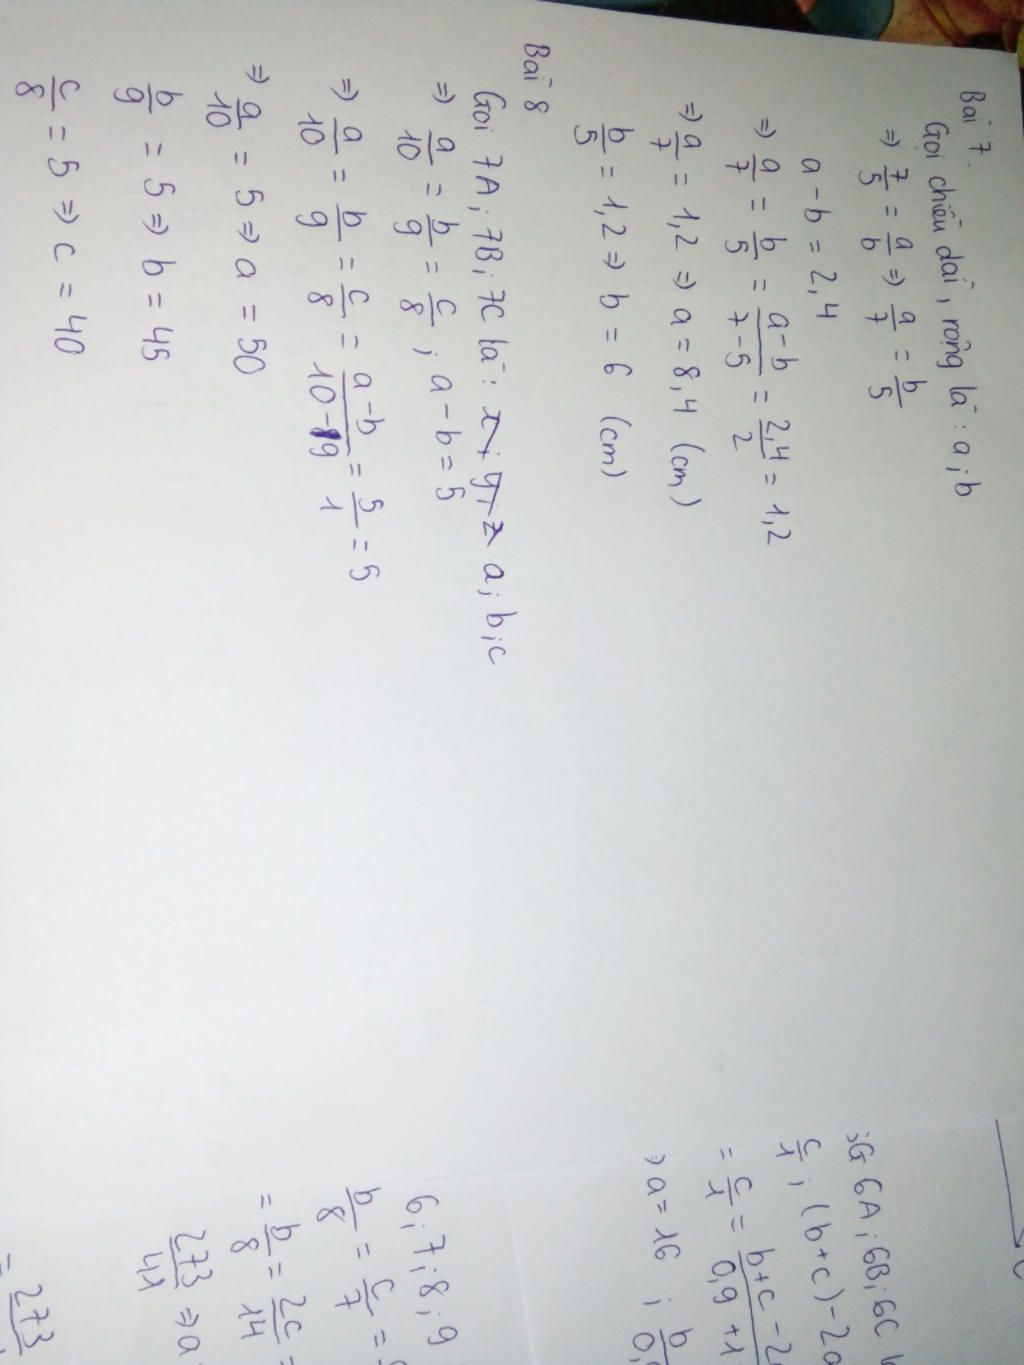 Bài 7.
Gọi chiều dài, rộng là: a; b
=> 7/5 = a/b => a/7 = b/5
a - b = 2,4
=> a/7 = b/5 = (a-b)/(7-5) = 2,4/2 = 1,2
=> a/7 = 1,2 => a = 8,4 (cm)
b/5 = 1,2 => b = 6 (cm)
Bài 8.
Gọi 7A; 7B; 7C là: a; b; c
=> a/10 = b/9 = c/8; a - b = 5
=> a/10 = b/9 = c/8 = (a-b)/(10-9) = 5/1 = 5
=> a/10 = 5 => a = 50
b/9 = 5 => b = 45
c/8 = 5 => c = 40
6A; 6B; 6C
c/1; (b+c) - 2a
= c/1 = (b+c-2)/(0,9+1
=> a = 16; b/
6; 7; 8; 9
b/8 = c/7 =
= b/8 = 2c/14 =
273/41 => a
= 273